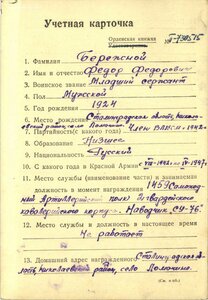 Учетная карточка
Орденская книжка
Удостоверение
1. Фамилия Бережной
2. Имя и отчество Федор Федорович
3. Воинское звание Младший сержант
4. Пол Мужской
5. Год рождения 1924
6. Место рождения Сталинградская область,
район, село
7. Партийность (с какого года) Член ВЛКСМ-1942г.
8. Образование Низшее
9. Национальность Русский
10. С какого года в Красной Армии с VIII-1942 по IV-1947г.
11. Место службы (наименование части) и занимаемая
должность в момент награждения 1459 Самоход-
ный Артиллерийский полк Гвардейского
кавалерийского корпуса. Наводчик СУ-76"
12. Место службы и должность в настоящее время
Не работает
13. Домашний адрес награжденного Сталинградская об-
ласть, Николаевский район, село
(См. н об.)